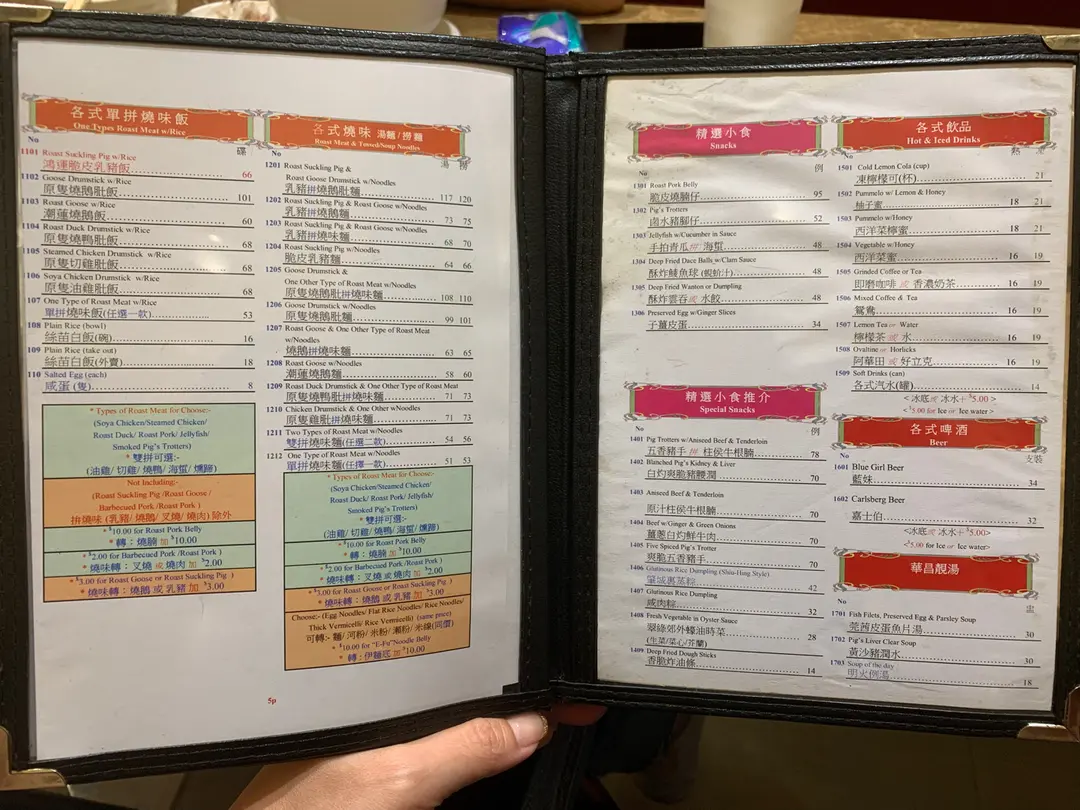 各式單拼燒味飯
One Types Roast Meat w/Rice
No
碟
1101 Roast Suckling Pig w/Rice
鴻運脆皮乳豬飯 66
1102 Goose Drumstick w/Rice
原隻燒鵝髀飯 101
1103 Roast Goose w/Rice
潮蓮燒鵝飯 60
1104 Roast Duck Drumstick w/Rice
原隻燒鴨髀飯 68
1105 Steamed Chicken Drumstick w/Rice
原隻切雞髀飯 68
1106 Soya Chicken Drumstick w/Rice
原隻油雞髀飯 68
107 One Type of Roast Meat w/Rice
單拼燒味飯(任選一款) 53
108 Plain Rice (bowl)
絲苗白飯(碗) 16
109 Plain Rice (take out)
絲苗白飯(外賣) 18
110 Salted Egg (each)
咸蛋 (隻) 8
* Types of Roast Meat for Choose:-
(Soya Chicken/Steamed Chicken/
Roast Duck/ Roast Pork/ Jellyfish/
Smoked Pig's Trotters)
* 雙拼可選:-
(油雞/ 切雞/ 燒鴨/ 海蜇/ 燻蹄)
Not Including:-
(Roast Suckling Pig /Roast Goose /
Barbecued Pork /Roast Pork )
拼燒味 (乳豬/ 燒鵝/ 叉燒/ 燒肉) 除外
*$10.00 for Roast Pork Belly
* 轉：燒腩 加 $10.00
*$2.00 for Barbecued Pork /Roast Pork )
* 燒味轉：叉燒 或 燒肉 加 $2.00
*$3.00 for Roast Goose or Roast Suckling Pig )
* 燒味轉：燒鵝 或 乳豬 加 $3.00
各式燒味 湯麵/撈麵
Roast Meat & Tossed/Soup Noodles
No
湯 撈
1201 Roast Suckling Pig &
Roast Goose Drumstick w/Noodles
乳豬拼燒鵝髀麵 117 120
1202 Roast Suckling Pig & Roast Goose w/Noodles
乳豬拼燒鵝麵 73 75
1203 Roast Suckling Pig & Roast Goose w/Noodles
乳豬拼燒味麵 68 70
1204 Roast Suckling Pig w/Noodles
脆皮乳豬麵 64 66
1205 Goose Drumstick &
One Other Type of Roast Meat w/Noodles
原隻燒鵝髀拼燒味麵 108 110
1206 Goose Drumstick w/Noodles
原隻燒鵝髀麵 99 101
1207 Roast Goose & One Other Type of Roast Meat
w/Noodles
燒鵝拼燒味麵 63 65
1208 Roast Goose w/Noodles
潮蓮燒鵝麵 58 60
1209 Roast Duck Drumstick & One Other Type of Roast Meat
原隻燒鴨髀拼燒味麵 71 73
1210 Chicken Drumstick & One Other w/Noodles
原隻雞髀拼燒味麵 71 73
1211 Two Types of Roast Meat w/Noodles
雙拼燒味麵(任選二款) 54 56
1212 One Type of Roast Meat w/Noodles
單拼燒味麵(任擇一款) 51 53
*Types of Roast Meat for Choose:-
(Soya Chicken/Steamed Chicken/
Roast Duck/ Roast Pork/ Jellyfish/
Smoked Pig's Trotters)
* 雙拼可選:-
(油雞/ 切雞/ 燒鴨/ 海蜇/ 燻蹄)
*$10.00 for Roast Pork Belly
* 轉：燒腩 加 $10.00
*$2.00 for Barbecued Pork /Roast Pork )
* 燒味轉：叉燒 或 燒肉 加 $2.00
*$3.00 for Roast Goose or Roast Suckling Pig )
* 燒味轉：燒鵝 或 乳豬 加 $3.00
Choose:- (Egg Noodles/ Flat Rice Noodles/ Rice Noodles/
Thick Vermicelli/ Rice Vermicelli) (same price)
可轉:- 麵/ 河粉/ 米粉/ 瀨粉/ 米線(同價)
*$10.00 for "E-Fu"Noodle Belly
* 轉：伊麵底 加 $10.00
5p
精選小食
Snacks
No
例
1301 Roast Pork Belly
脆皮燒腩仔 95
1302 Pig's Trotters
鹵水豬腳仔 52
1303 Jellyfish w/Cucumber in Sauce
手拍青瓜拼海蜇 48
1304 Deep Fried Dace Balls w/Clam Sauce
酥炸鯪魚球(蜆蚧汁) 48
1305 Deep Fried Wanton or Dumpling
酥炸雲吞 或 水餃 48
1306 Preserved Egg w/Ginger Slices
子薑皮蛋 34
精選小食推介
Special Snacks
No
例
1401 Pig Trotters w/Aniseed Beef & Tenderloin
五香豬手 拼 柱侯牛根腩 78
1402 Blanched Pig's Kidney & Liver
白灼爽脆豬腰潤 70
1403 Aniseed Beef & Tenderloin
原汁柱侯牛根腩 70
1404 Beef w/Ginger & Green Onions
薑蔥白灼鮮牛肉 70
1405 Five Spiced Pig's Trotter
爽脆五香豬手 70
1406 Glutinous Rice Dumpling (Shiu-Hing Style)
肇城裹蒸粽 42
1407 Glutinous Rice Dumpling
咸肉粽 32
1408 Fresh Vegetable in Oyster Sauce
翠綠郊外蠔油時菜 28
(生菜/菜心/芥蘭)
1409 Deep Fried Dough Sticks
香脆炸油條 14
各式飲品
Hot & Iced Drinks
No
熱
1501 Cold Lemon Cola (cup)
凍檸檬可(杯) 21
1502 Pummelo w/ Lemon & Honey
柚子蜜 18 21
1503 Pummelo w/Honey
西洋菜檸蜜 18 21
1504 Vegetable w/Honey
西洋菜蜜 16 19
1505 Grinded Coffee or Tea
即磨咖啡 或 香濃奶茶 16 19
1506 Mixed Coffee & Tea
鴛鴦 16 19
1507 Lemon Tea or Water
檸檬茶 或 水 16 19
1508 Ovaltine or Horlicks
阿華田 或 好立克 16 19
1509 Soft Drinks (can)
各式汽水(罐) 14
<冰底 或 冰水+$5.00>
<$5.00 for Ice or Ice water>
各式啤酒
Beer
No
支裝
1601 Blue Girl Beer
藍妹 34
1602 Carlsberg Beer
嘉士伯 32
<冰底 或 冰水+$5.00>
<$5.00 for Ice or Ice water>
華昌靚湯
No
盅
1701 Fish Filets, Preserved Egg & Parsley Soup
莞茜皮蛋魚片湯 30
1702 Pig's Liver Clear Soup
黃沙豬潤水 30
1703 Soup of the day
明火例湯 18